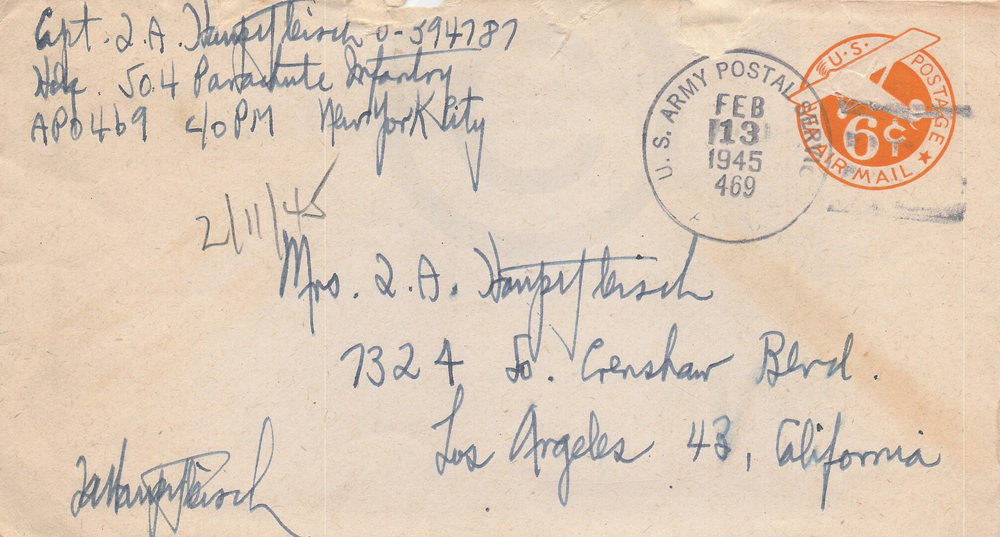 Capt. L.A. Hauptfleisch O-394787
Hdq. 504 Parachute Infantry
APO 469 c/o PM New York City
U. S. ARMY POSTAL SERVICE
FEB
13
1945
469
U.S. POSTAGE
6¢
AIR MAIL
2/11/45
Mrs. L.A. Hauptfleisch
7324 So. Crenshaw Blvd.
Los Angeles 43, California
LA Hauptfleisch